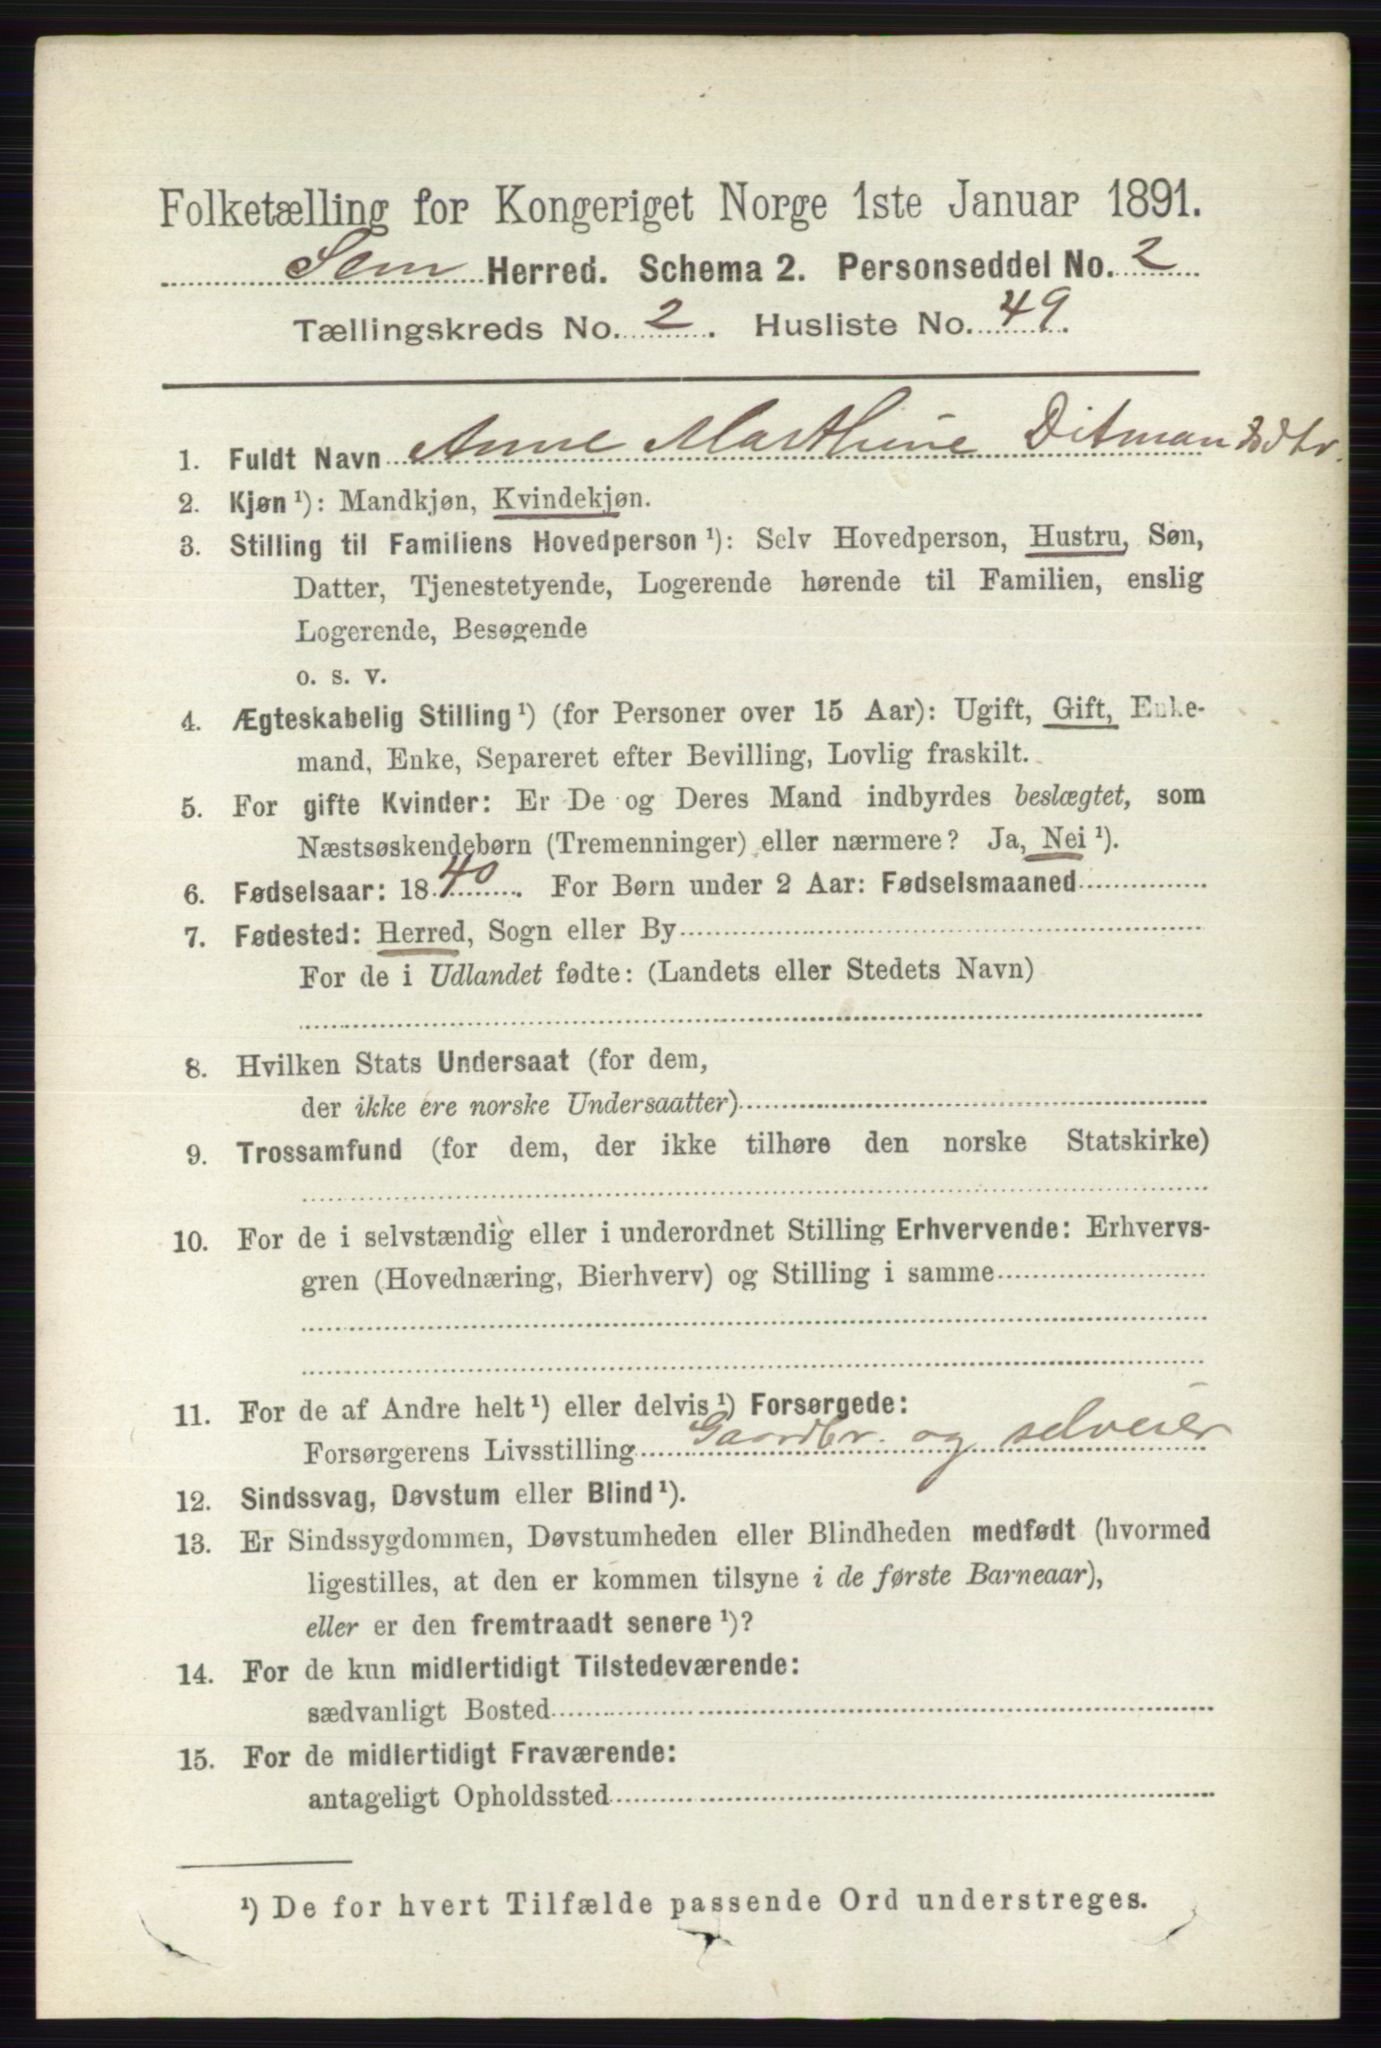 Folketælling for Kongeriget Norge 1ste Januar 1891.
Sem Herred. Schema 2. Personseddel No. 2
Tællingskreds No. 2. Husliste No. 49.
1. Fuldt Navn Anne Marthine Ditman
2. Kjøn ¹): Mandkjøn, Kvindekjøn.
3. Stilling til Familiens Hovedperson ¹): Selv Hovedperson, Hustru, Søn,
Datter, Tjenestetyende, Logerende hørende til Familien, enslig
Logerende, Besøgende
o. s. v.
4. Ægteskabelig Stilling ¹) (for Personer over 15 Aar): Ugift, Gift, Enke-
mand, Enke, Separeret efter Bevilling, Lovlig fraskilt.
5. For gifte Kvinder: Er De og Deres Mand indbyrdes beslægtet, som
Næstsøskendebørn (Tremenninger) eller nærmere? Ja, Nei ¹).
6. Fødselsaar: 1840. For Børn under 2 Aar: Fødselsmaaned
7. Fødested: Herred, Sogn eller By
For de i Udlandet fødte: (Landets eller Stedets Navn)
8. Hvilken Stats Undersaat (for dem,
der ikke ere norske Undersaatter)
9. Trossamfund (for dem, der ikke tilhøre den norske Statskirke)
10. For de i selvstændig eller i underordnet Stilling Erhvervende: Erhvervs-
gren (Hovednæring, Bierhverv) og Stilling i samme
11. For de af Andre helt ¹) eller delvis ¹) Forsørgede:
Forsørgerens Livsstilling Gaardbr. og selveier
12. Sindssvag, Døvstum eller Blind ¹).
13. Er Sindssygdommen, Døvstumheden eller Blindheden medfødt (hvormed
ligestilles, at den er kommen tilsyne i de første Barneaar),
eller er den fremtraadt senere ¹)?
14. For de kun midlertidigt Tilstedeværende:
sædvanligt Bosted
15. For de midlertidigt Fraværende:
antageligt Opholdssted
¹) De for hvert Tilfælde passende Ord understreges.